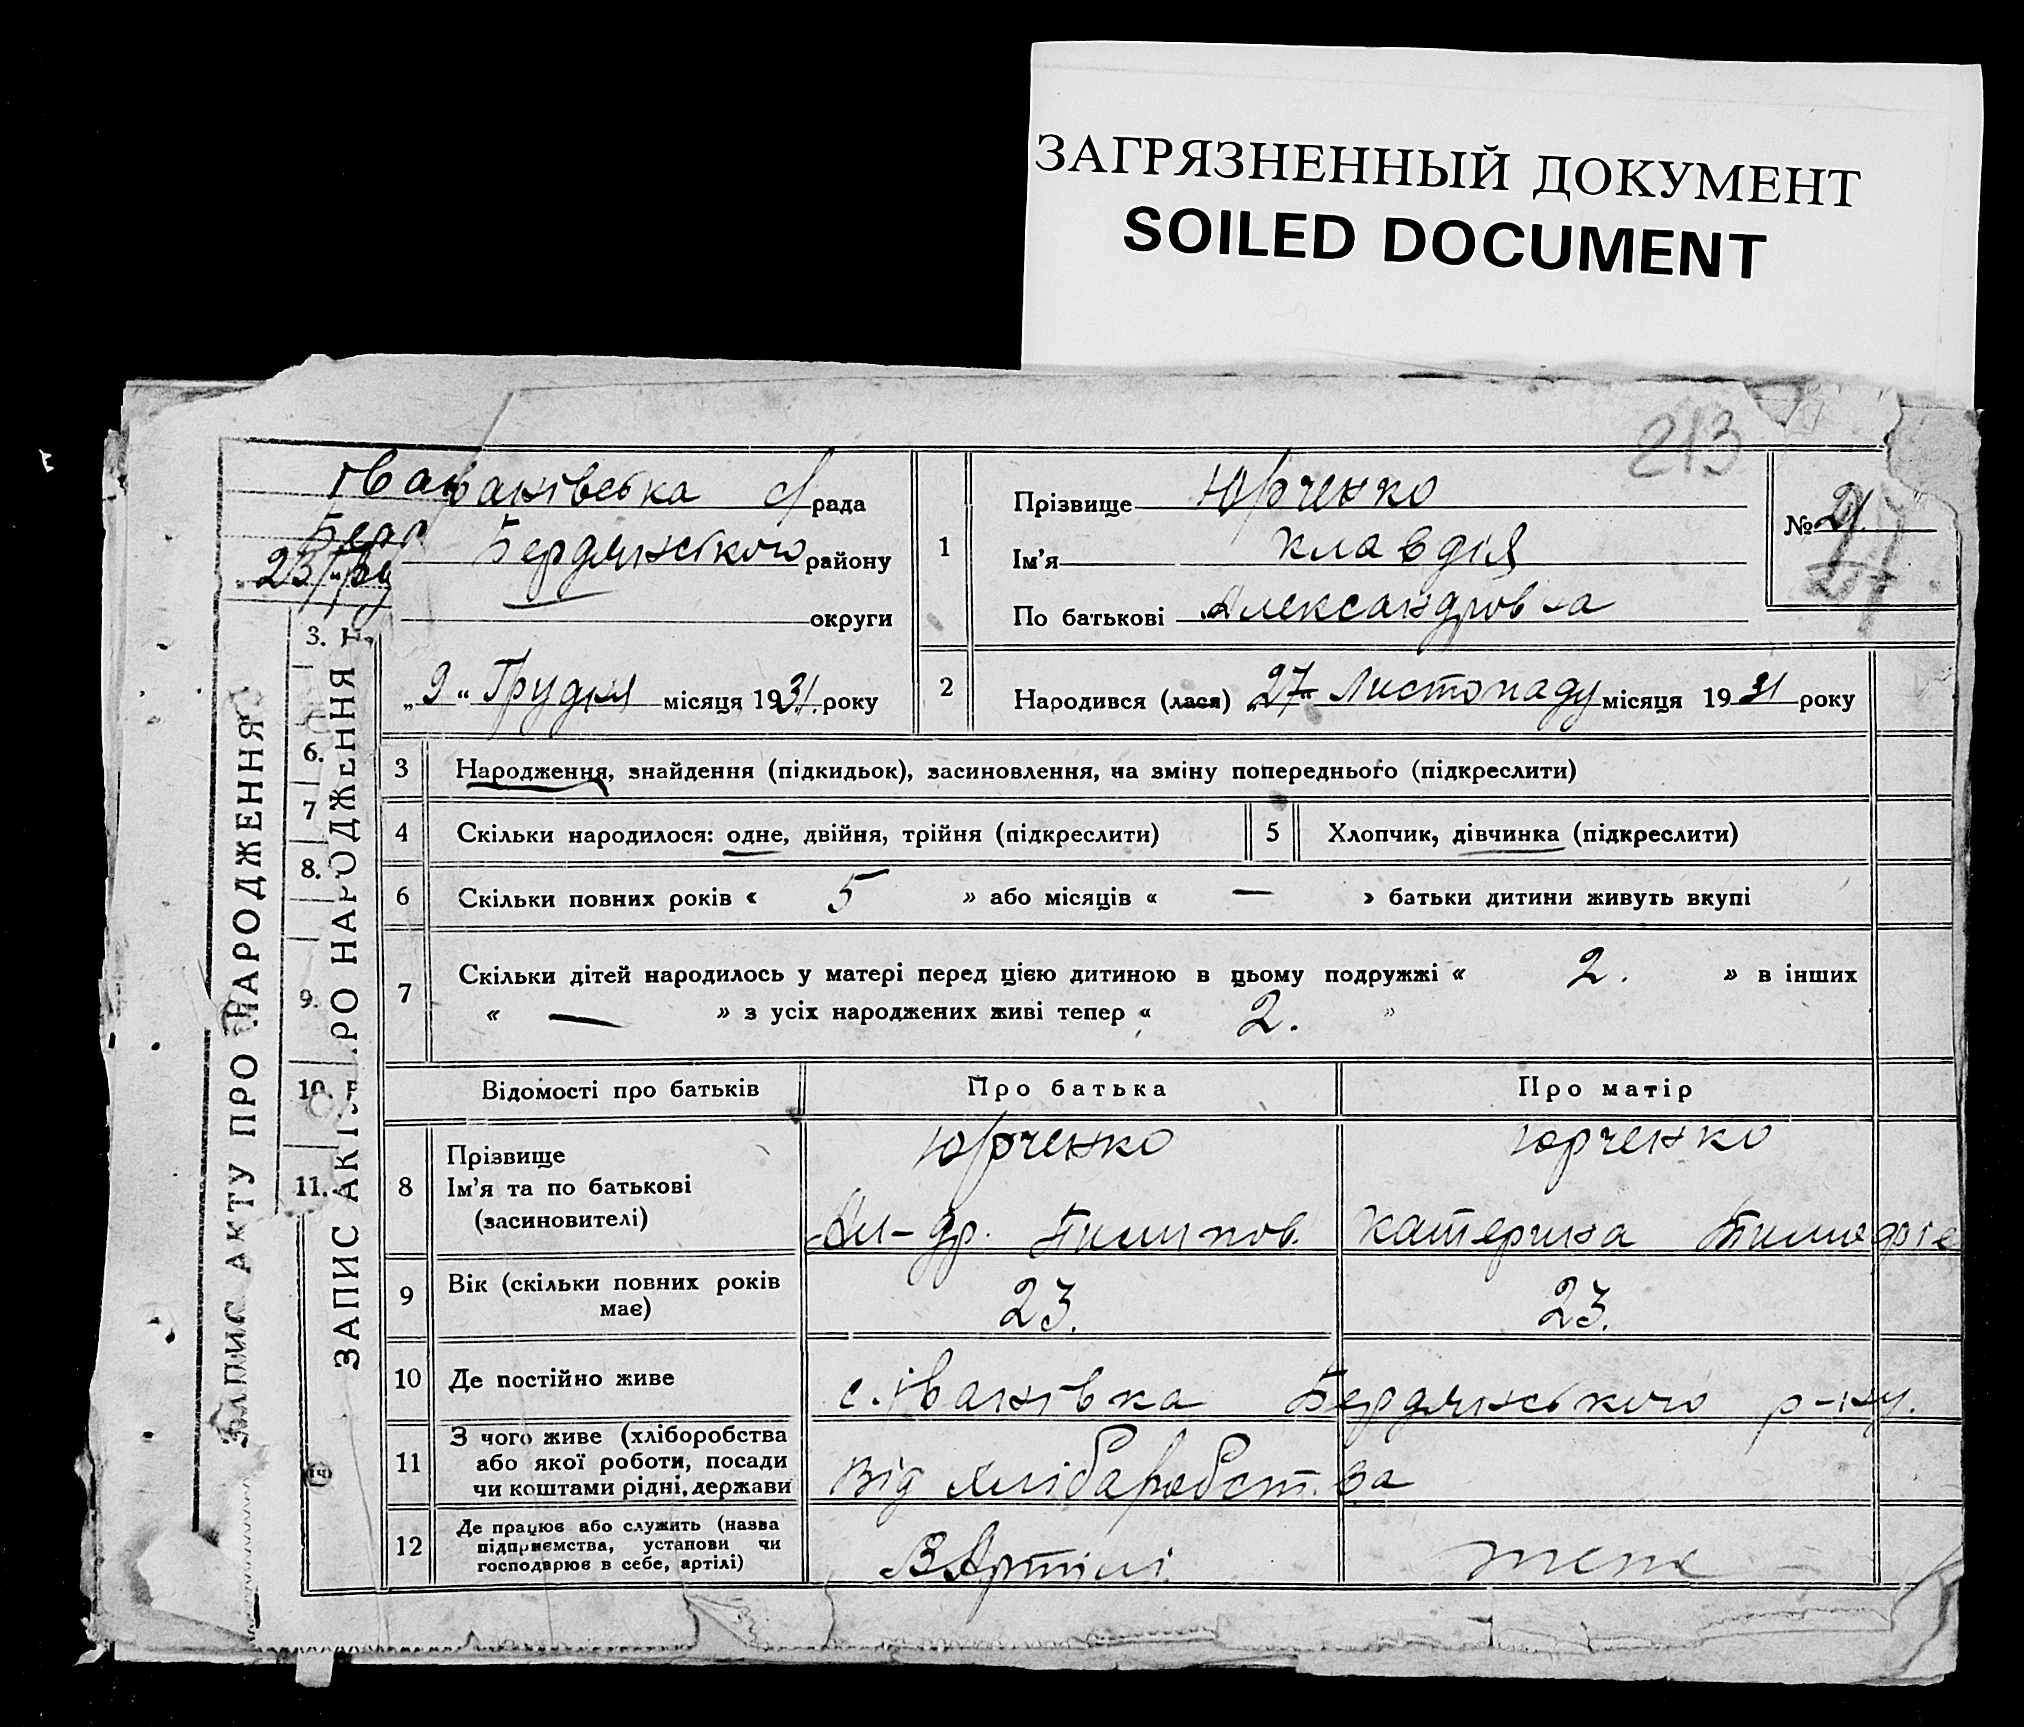 ЗАГРЯЗНЕННЫЙ ДОКУМЕНТ
SOILED DOCUMENT
213
Іванівська с/рада
Бердянського району
округи
„9“ Грудня місяця 1931. року
1
Прізвище Юрченко
Ім'я Клавдія
По батькові Александровна
№ 21.
2
Народився (лася) „27“ Листопаду місяця 1931 року
3 Народження, знайдення (підкидьок), засиновлення, на зміну попереднього (підкреслити)
4 Скільки народилося: одне, двійня, трійня (підкреслити)
5 Хлопчик, дівчинка (підкреслити)
6 Скільки повних років « 5 » або місяців « — » батьки дитини живуть вкупі
7 Скільки дітей народилось у матері перед цією дитиною в цьому подружжі « 2. » в інших
« — » з усіх народжених живі тепер « 2. »
Відомості про батьків Про батька Про матір
8 Прізвище Юрченко Юрченко
Ім'я та по батькові Ал-др. Пилипов. Катерина
(засиновителі)
9 Вік (скільки повних років має) 23. 23.
10 Де постійно живе с. Іванівка Бердянського р-ну.
11 З чого живе (хліборобства
або якої роботи, посади
чи коштами рідні, держави
Від хлібаробства
12 Де працює або служить (назва
підприємства, установи чи
господарює в себе, артілі)
В Артілі теж
ЗАПИС АКТУ ПРО НАРОДЖЕННЯ
ЗАПИС АКТУ ПРО НАРОДЖЕННЯ
3.
6.
7
8.
9.
10.
11.